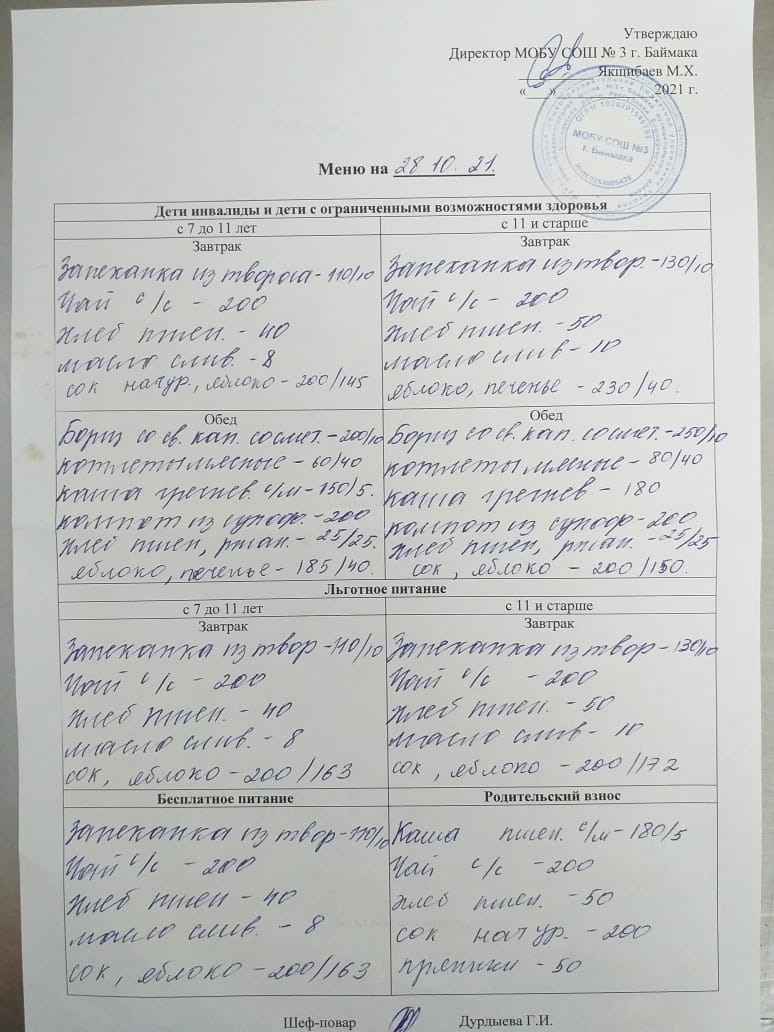 Утверждаю
Директор МОБУ СОШ № 3 г. Баймака
Якшибаев М.Х.
«___» 2021 г.
ОГРН
МОБУ СОШ №3
г. Баймака
Меню на 28 10. 21.
Дети инвалиды и дети с ограниченными возможностями здоровья
с 7 до 11 лет
Завтрак
Запеканка из творога - 110/10
Чай с/с - 200
Хлеб пшен. - 40
масло слив. - 8
сок натур., яблоко - 200/145
с 11 и старше
Завтрак
Запеканка из твор. - 130/10
Чай с/с - 200
Хлеб пшен. - 50
масло слив - 10
яблоко, печенье - 230/40.
Обед
Борщ со св. кап. со смет. - 200/10
котлеты мясные - 60/40
каша гречнев. с/м - 150/5.
компот из сухофр. - 200
Хлеб пшен, ржан. - 25/25.
яблоко, печенье - 185/40.
Обед
Борщ со св. кап. со смет. - 250/10
котлеты мясные - 80/40
каша гречнев - 180
компот из сухофр - 200
Хлеб пшен, ржан. - 25/25
сок, яблоко - 200/150.
Льготное питание
с 7 до 11 лет
Завтрак
Запеканка из твор - 110/10
Чай с/с - 200
Хлеб пшен. - 40
масло слив. - 8
сок, яблоко - 200/163
с 11 и старше
Завтрак
Запеканка из твор - 130/10
Чай с/с - 200
Хлеб пшен. - 50
масло слив - 10
сок, яблоко - 200/172
Бесплатное питание
Запеканка из твор - 110/10
Чай с/с - 200
Хлеб пшен - 40
масло слив. - 8
сок, яблоко - 200/163
Родительский взнос
Каша пшен. с/м - 180/5
Чай с/с - 200
Хлеб пшен. - 50
сок натур. - 200
пряники - 50
Шеф-повар Дурдыева Г.И.